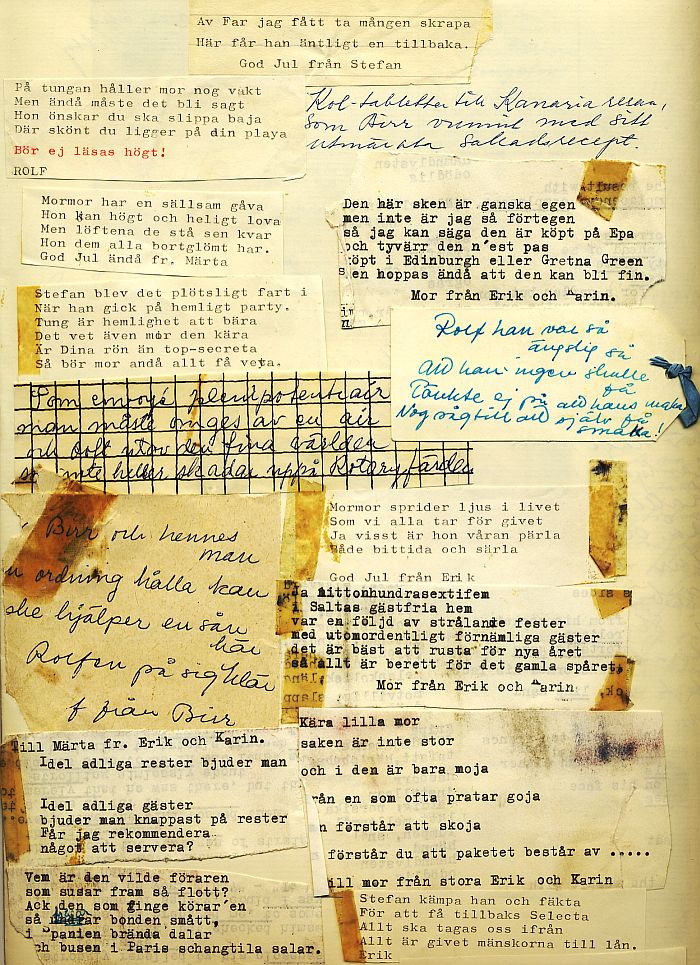 Av Far jag fått ta mången skrapa
Här får han äntligt en tillbaka.
God Jul från Stefan
På tungan håller mor nog vakt
Men ändå måste det bli sagt
Hon önskar du ska slippa baja
Där skönt du ligger på din playa
Bör ej läsas högt!
ROLF
Kol-tabletter till Kanarieresan,
som Birr vunnit med sitt
utmärkta salladsrecept.
Mormor har en sällsam gåva
Hon kan högt och heligt lova
Men löftena de stå sen kvar
Hon dem alla bortglömt har.
God Jul ändå fr. Märta
Den här sken är ganska egen
men inte är jag så förtegen
så jag kan säga den är köpt på Epa
och tyvärr den n'est pas
köpt i Edinburgh eller Gretna Green
men hoppas ändå att den kan bli fin.
Mor från Erik och Karin.
Stefan blev det plötsligt fart i
När han gick på hemligt party.
Tung är hemlighet att bära
Det vet även mor den kära
Är Dina rön än top-secreta
Så bör mor andå allt få veta.
Rolf han var så
ängslig så
Att han ingen skulle
få
Tänkte ej på att hans maka
Nog såg till att själv få
smaka!
Som envoyé plenipotentiär
man måste omges av en air
och doft utav den fina världen
så inte heller skadar uppå Rotaryfärden
Birr och hennes
man
ordning hålla kan
hjälper en sån
här
Rolfen på sig klär
f från Birr
Mormor sprider ljus i livet
Som vi alla tar för givet
Ja visst är hon våran pärla
Både bittida och särla
God Jul från Erik
Ja nittonhundrasextifem
i Saltas gästfria hem
var en följd av strålande fester
med utomordentligt förnämliga gäster
det är bäst att rusta för nya året
så allt är berett för det gamla spåret.
Mor från Erik och Karin
Till Märta fr. Erik och Karin.
Idel adliga rester bjuder man
Idel adliga gäster
bjuder man knappast på rester
Får jag rekommendera
något att servera?
Kära lilla mor
saken är inte stor
och i den är bara moja
från en som ofta pratar goja
en förstår att skoja
förstår du att paketet består av .....
till mor från stora Erik och Karin
Vem är den vilde föraren
som susar fram så flott?
Ack den som finge körar'en
så bonden smått,
i Spanien brända dalar
och busen i Paris schangtila salar.
Stefan kämpa han och fäkta
För att få tillbaks Selecta
Allt ska tagas oss ifrån
Allt är givet mänskorna till lån.
Erik